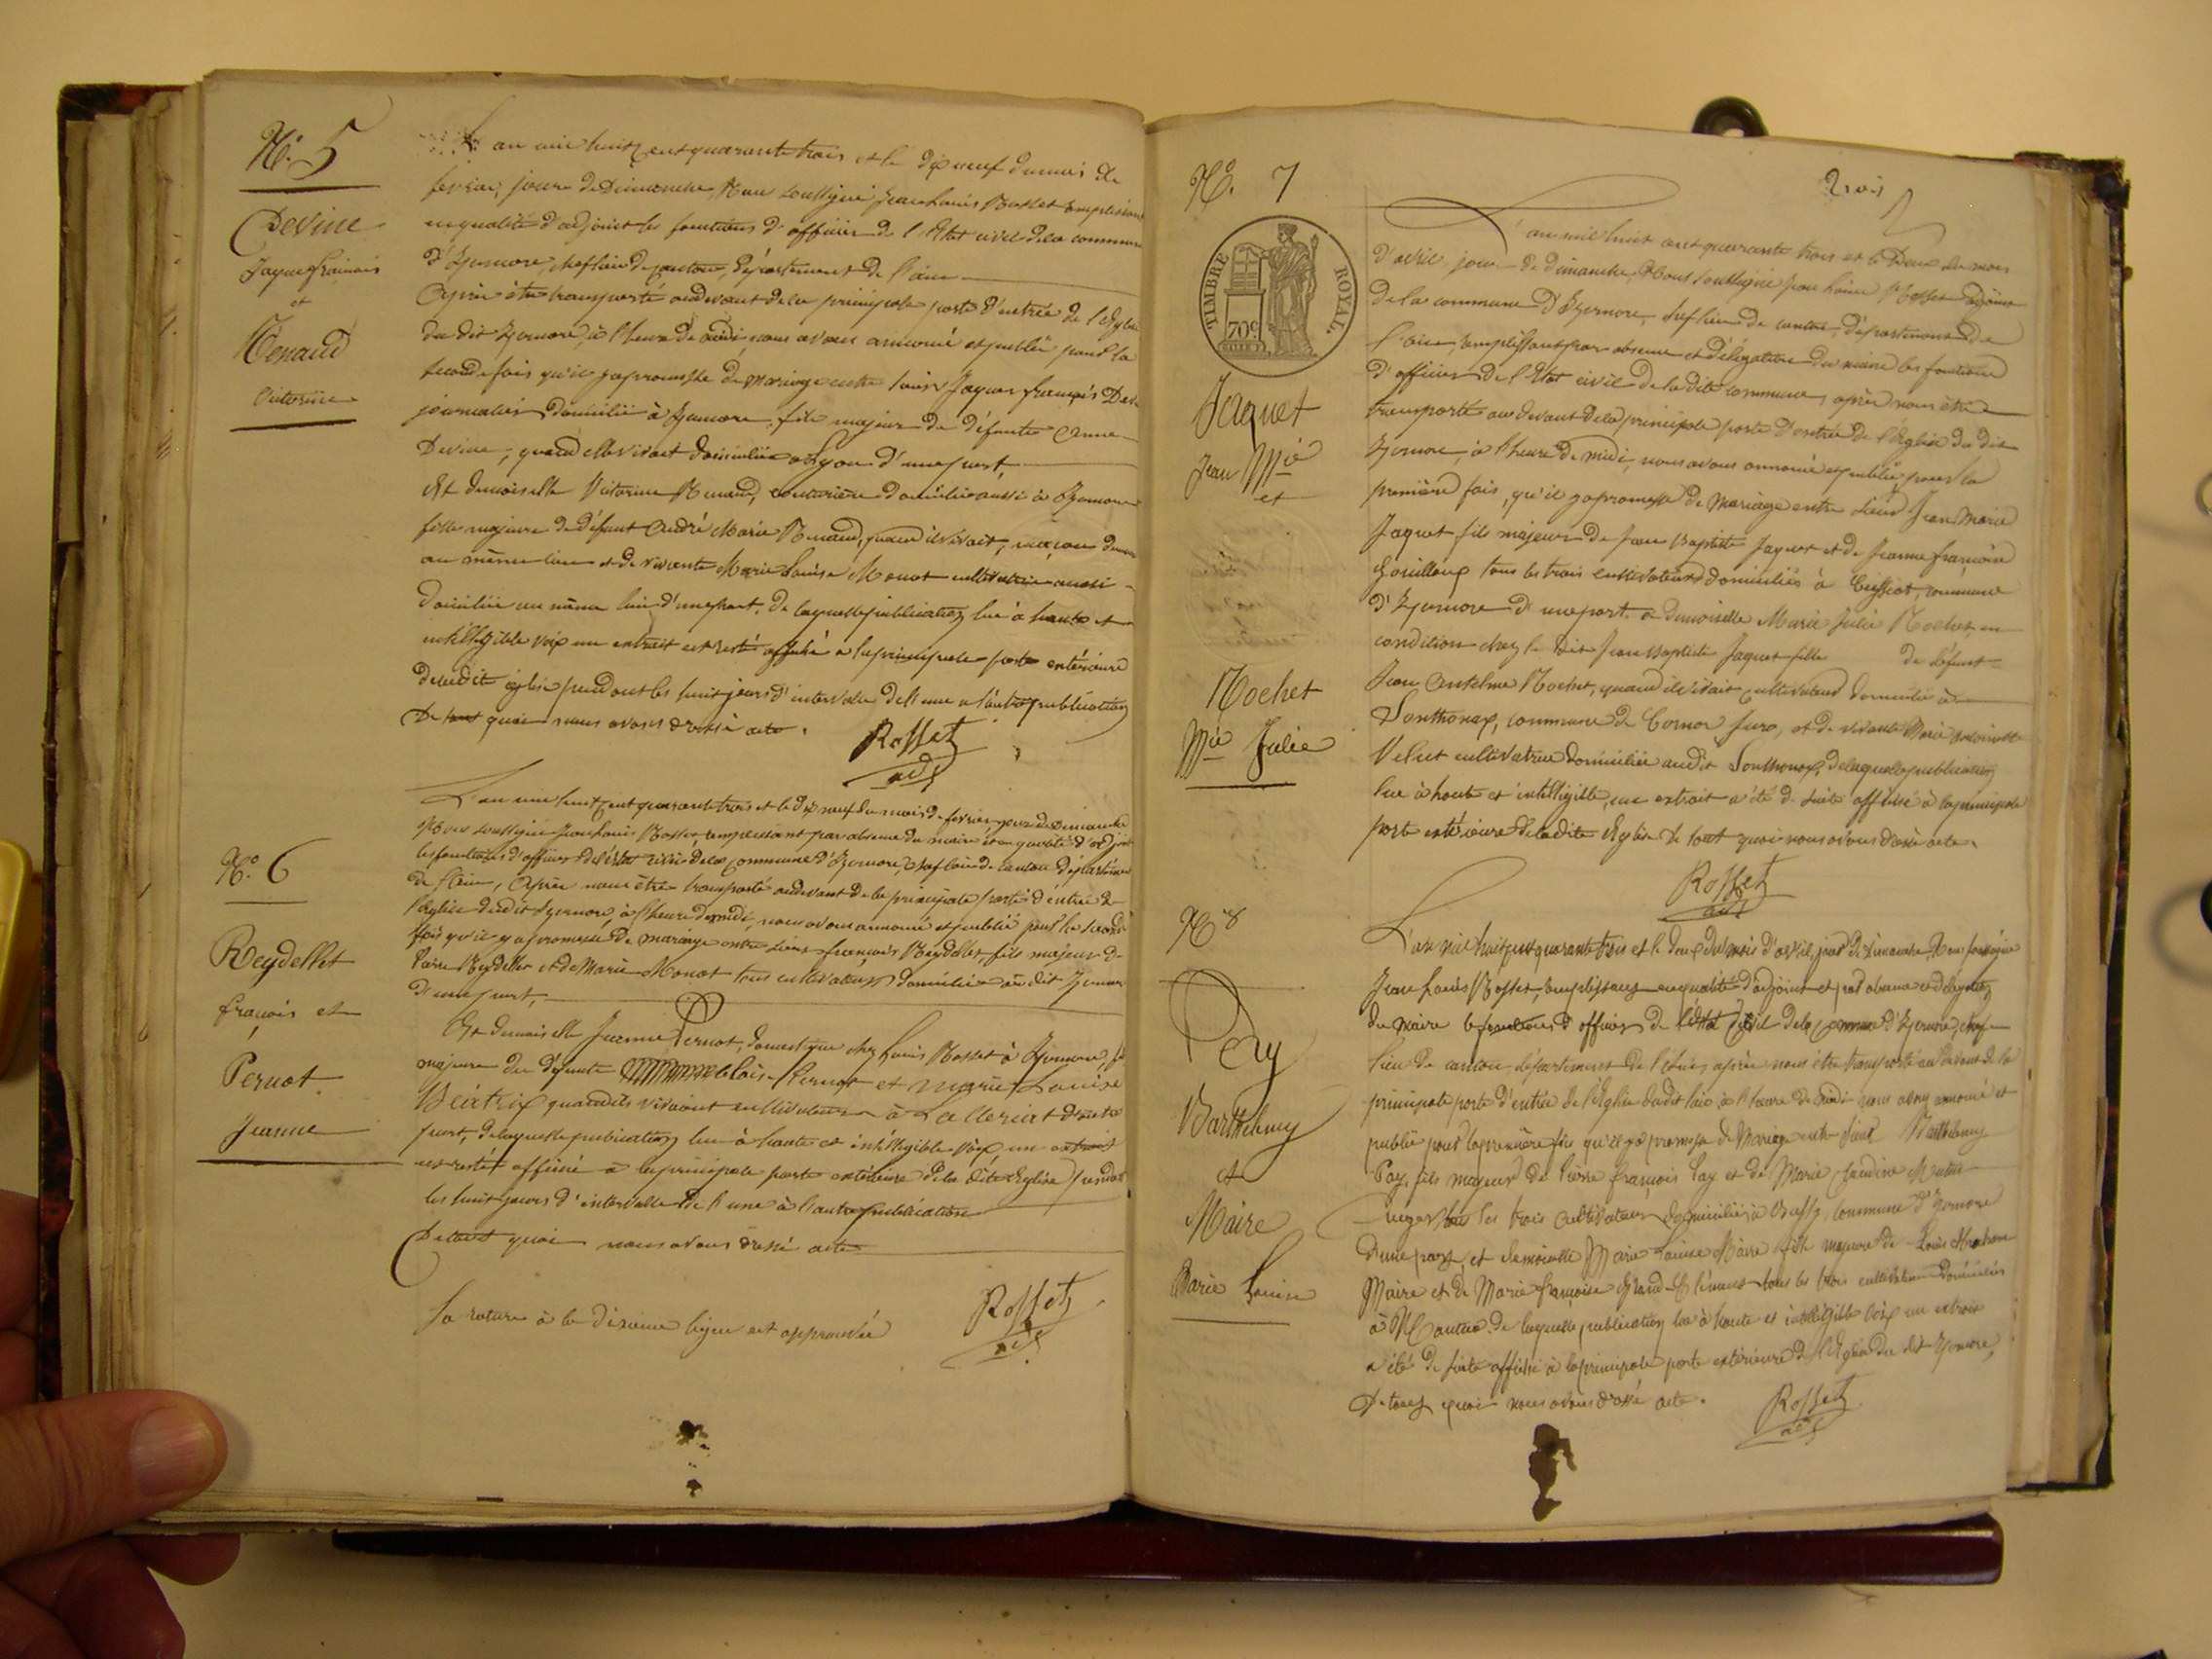 N.° 5
Devine
Jaque français
et
Renaud
Victorine
L'an mil huit cent quarante trois et le dix neuf du mois de
fevrier, jour de Dimanche, Nous soussigné Jean Louis Rosset remplissant
en qualité d'adjoint les fonctions d'officier de l'Etat civil de la commune
d'Izernore, chef lieu de canton, département de l'ain
Après être transporté au devant de la principale porte d'entrée de l'Eglise
du dit Izernore, à l'heure de midi, nous avons annoncé et publié pour la
seconde fois qu'il y a promesse de mariage entre sieur Jaques français Devi
journalier domicilié à Izernore, fils majeur de défunte Anne
Devine, quand elle vivait domiciliée à Lyon d'une part,
Et demoiselle Victorine Renaud, couturière domiciliée aussi à Izernore
fille majeure de défunt André Marie Renaud, quand il vivait, maçon
au même lieu et de vivante Marie Louise Monot cultivatrice aussi
domiciliée au même lieu d'une part. De laquelle publication lue à haute et
intelligible voix un extrait est resté affiché à la principale porte extérieure
de la dite église pendant les huit jours d'intervalle de l'une à l'autre publication
De tout quoi nous avons dressé acte.
Rosset
adj
N.° 6
Reydellet
françois et
Pernot
Jeanne
L'an mil huit cent quarante trois et le dix neuf du mois de fevrier, jour de Dimanche
Nous soussigné Jean Louis Rosset, remplissant par absence du maire et en qualité d'adjoint
les fonctions d'officier de l'état civil de la commune d'Izernore, chef lieu de canton département
de l'ain, Après nous être transporté au devant de la principale porte d'entrée de
l'Eglise du dit Izernore, à l'heure de midi, nous avons annoncé et publié pour la seconde
fois qu'il y a promesse de mariage entre sieur françois Reydellet, fils majeur de
Reydellet et de Marie Monot tous cultivateurs domiciliés au dit Izernore
d'une part,
Et demoiselle Jeanne Pernot, domestique chez Louis Rosset à Izernore,
majeure de défunts blaise Pernot et Marie Louise
Béatrix quand ils vivaient cultivateurs à Lalleriat d'autre
part, de laquelle publication lue à haute et intelligible voix, un extrait
est resté affiché à la principale porte extérieure de la dite Eglise pendant
les huit jours d'intervalle de l'une à l'autre publication
De tout quoi nous avons dressé acte
La rature à la dixième ligne est approuvée
Rosset
adj
trois
N.° 7
TIMBRE ROYAL.
70 c.
Jaquet
Jean Mie
et
Rochet
Mie Julie
L'an mil huit cent quarante trois et le Deux du mois
d'avril jour de dimanche, Nous soussigné Jean Louis Rosset adjoint
de la commune d'Izernore, chef lieu de canton, département de
l'ain, remplissant par absence et délégation du maire les fonctions
d'officier de l'Etat civil de la dite commune, après nous être
transporté au devant de la principale porte d'entrée de l'Eglise du dit
Izernore, à l'heure de midi, nous avons annoncé et publié, pour la
première fois, qu'il y a promesse de mariage entre sieur Jean Marie
Jaquet fils majeur de Jean Baptiste Jaquet et de Jeanne françoise
Gouilloux tous les trois cultivateurs domiciliés à Ceissiat, commune
d'Izernore d'une part. et demoiselle Marie Julie Rochet, en
condition chez le dit Jean Baptiste Jaquet fille de défunt
Jean Anselme Rochet, quand il vivait cultivateur domicilié à
Santhonax, commune de Cornod Jura, et de vivante Marie antoinette
Velut cultivatrice domiciliée au dit Santhonax, de laquelle publication
lue à haute et intelligible, un extrait a été de suite affiché à la principale
porte extérieure de la dite Eglise de tout quoi nous avons dressé acte.
Rosset
adj
N° 8
Pay
Barthélemy
et
Maire
Marie Louise
L'an mil huit cent quarante trois et le deux du mois d'avril, jour de dimanche, Nous soussigné
Jean Louis Rosset, remplissant en qualité d'adjoint et par absence et délégation
du maire les fonctions d'officier de l'état civil de la commune d'Izernore, chef
lieu de canton, département de l'ain, après nous être transporté au devant de la
principale porte d'entrée de l'Eglise du dit lieu à l'heure de midi nous avons annoncé et
publié pour la première fois qu'il y a promesse de Mariage entre sieur Barthélemy
Pay, fils majeur de Pierre françois Pay et de Marie Claudine
tous les trois cultivateurs domiciliés à Bussy, commune d'Izernore
d'une part, et demoiselle Marie Louise Maire fille majeure de Louis Abraham
Maire et de Marie françoise Grand-Clément tous les trois cultivateurs domiciliés
à de laquelle publication lue à haute et intelligible voix un extrait
a été de suite affiché à la principale porte extérieure de l'Eglise du dit Izernore,
De tout quoi nous avons dressé acte.
Rosset
adj